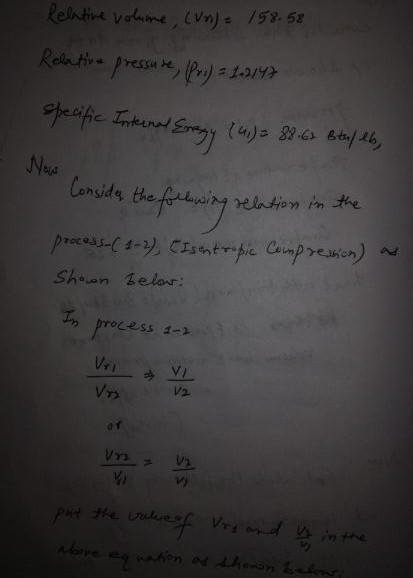 Relative volume, (Vr1) = 158.58
Relative pressure, (Pr1) = 1.2147
Specific Internal Energy (u1) = 88.62 Btu/lb,
Now
Consider the following relation in the
process-(1-2), (Isentropic Compression) as
Shown below:
In process 1-2
Vr1/Vr2 ⇒ V1/V2
or
Vr2/Vr1 = V2/V1
put the value of Vr1 and V2/V1 in the
above equation as shown below: